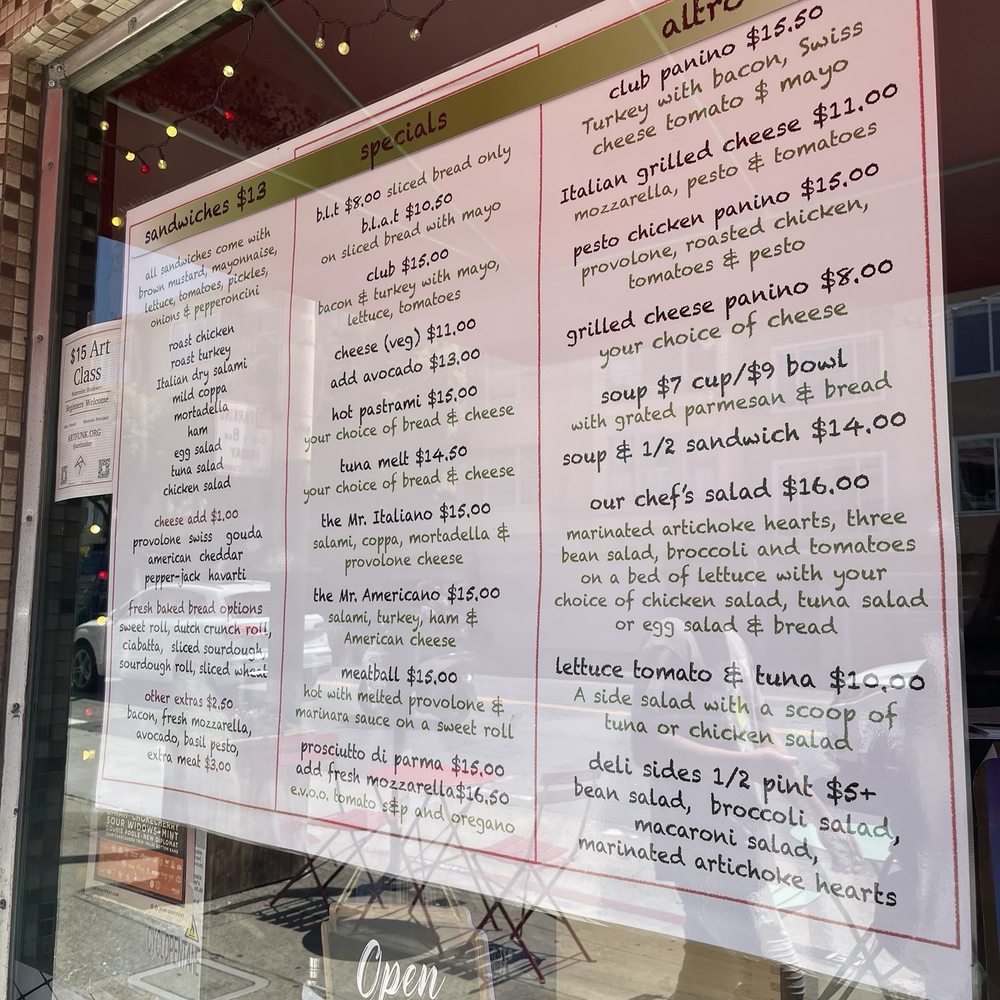 sandwiches $13
all sandwiches come with
brown mustard, mayonnaise,
lettuce, tomatoes, pickles,
onions & pepperoncini
roast chicken
roast turkey
Italian dry salami
mild coppa
mortadella
ham
egg salad
tuna salad
chicken salad
cheese add $1.00
provolone swiss gouda
american cheddar
pepper-jack havarti
fresh baked bread options
sweet roll, dutch crunch roll,
ciabatta, sliced sourdough,
sourdough roll, sliced wheat
other extras $2.50
bacon, fresh mozzarella,
avocado, basil pesto,
extra meat $3.00
specials
b.l.t $8.00 sliced bread only
b.l.a.t $10.50
on sliced bread with mayo
club $15.00
bacon & turkey with mayo,
lettuce, tomatoes
cheese (veg) $11.00
add avocado $13.00
hot pastrami $15.00
your choice of bread & cheese
tuna melt $14.50
your choice of bread & cheese
the Mr. Italiano $15.00
salami, coppa, mortadella &
provolone cheese
the Mr. Americano $15.00
salami, turkey, ham &
American cheese
meatball $15.00
hot with melted provolone &
marinara sauce on a sweet roll
prosciutto di parma $15.00
add fresh mozzarella$16.50
e.v.o.o. tomato s&p and oregano
altro
club panino $15.50
Turkey with bacon, Swiss
cheese tomato $ mayo
Italian grilled cheese $11.00
mozzarella, pesto & tomatoes
pesto chicken panino $15.00
provolone, roasted chicken,
tomatoes & pesto
grilled cheese panino $8.00
your choice of cheese
soup $7 cup/$9 bowl
with grated parmesan & bread
soup & 1/2 sandwich $14.00
our chef's salad $16.00
marinated artichoke hearts, three
bean salad, broccoli and tomatoes
on a bed of lettuce with your
choice of chicken salad, tuna salad
or egg salad & bread
lettuce tomato & tuna $10.00
A side salad with a scoop of
tuna or chicken salad
deli sides 1/2 pint $5+
bean salad, broccoli salad,
macaroni salad,
marinated artichoke hearts
$15 Art
Class
Beginners Welcome
ARTFUNK.ORG
SOUR WIDOWS•MINT
Open